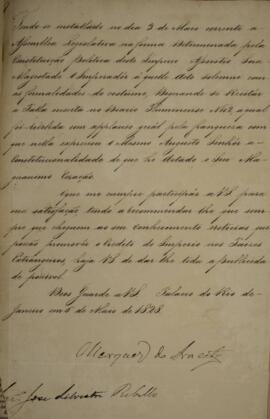 Tendo se installado no dia 3 de Maio corrente a
Assemblea Legislativa na forma determinada pela
Constituição Politica deste Imperio Assistio Sua
Magestade o Imperador à quelle Acto solemne com
as formalidades do costume, Dignando se Recitar
a Falla inserta no Diario Fluminense Nº 2, a qual
foi recebida com applauso geral pela franqueza com
que nella exprimio o Mesmo Augusto Senhor a
Constitucionalidade de que he dotado o Seu Ma-
gnanimo Coração.
O que me cumpre participar a V.S. para
sua satisfação, tendo a recommendar lhe que sem-
pre que cheguem ao seu conhecimento noticias que
possão promover o Credito do Imperio nos Paizes
Estrangeiros, haja V.S. de dar lhe toda a publicidade
possivel.
Deos Guarde a V.S. Palacio do Rio de
Janeiro em 5 de Maio de 1828.
Marquez do Aracaty
Snr. José Silvestre Rebello